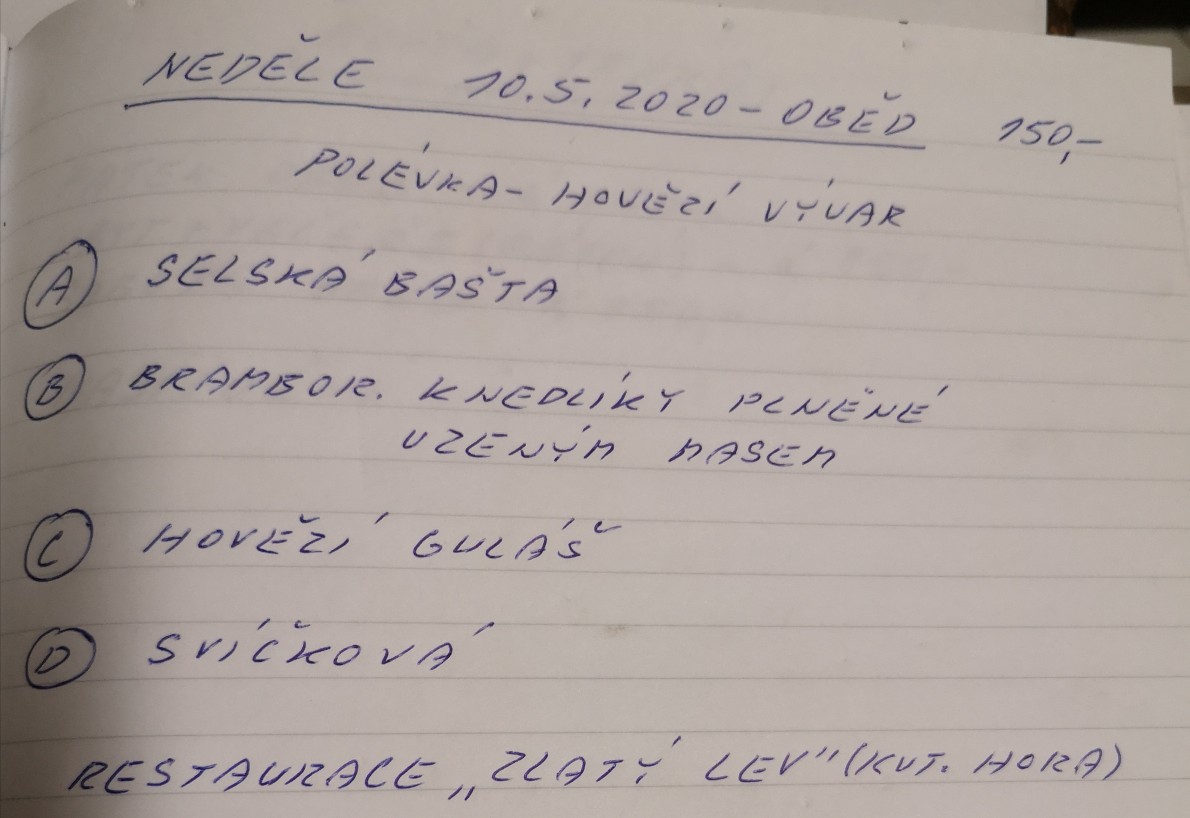 NEDĚLE 10.5.2020 - OBĚD 150,-
POLÉVKA - HOVĚZÍ VÝVAR
A SELSKÁ BAŠTA
B BRAMBOR. KNEDLÍKY PLNĚNÉ
UZENÝM MASEM
C HOVĚZÍ GULÁŠ
D SVÍČKOVÁ
RESTAURACE „ZLATÝ LEV" (KUT. HORA)